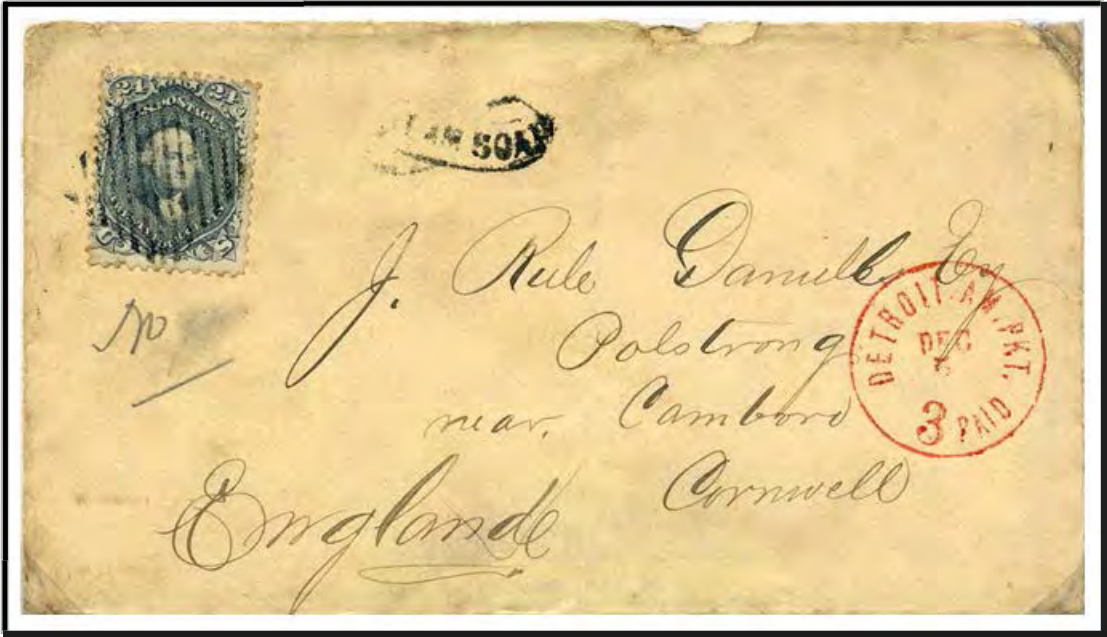 24 24
U.S. POSTAGE
J. Rule Daniell Esq
Polstrong
near. Camboro
Cornwell
England
DETROIT. AM. PKT.
DEC
3 PAID